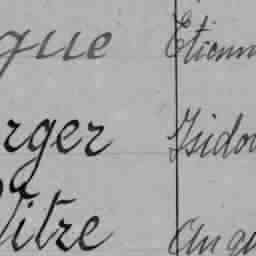 gue Etienn
rger Isidor
Vitre Augu